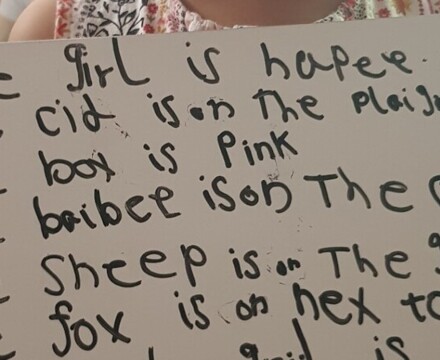 girl is hapee.
cid is on the
box is Pink
baibee is on The
Sheep is on The
fox is on nex to
is